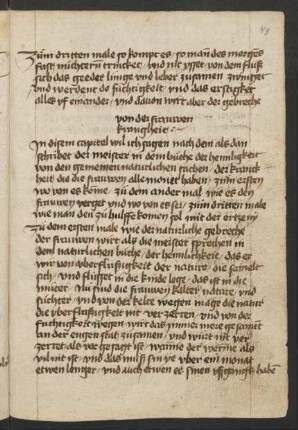 Zům dritten male so kompt es / so man des morgens
fast nüchtern trincket / vnd nit ysset / von dem fluß
sich das geeder lunge vnd leber zusamen
vnd werdent do füchtigkeit / vnd das ersticket
alles vff einander / vnd dauon wirt aber der gebreche
von der frauwen
kranckheit
In disem capitel wil ich sagen nach dem als dan
schriber der meister in dem büche der heimligkeit
von den gemeinen natürlichen sachen / der kranck
heit die die frauwen alle monet haben / zům ersten
wo von es kome / zů dem ander mal wie es den
frauwen verget vnd wo von es sei / zům dritten male
wie man den zů hülffe komen sol mit der ertzeny
Zů dem ersten male wie der natürliche gebreche
der frauwen wirt als die meister sprechen in
dem natürlichen büche / der heimlicheit / das er
wirt von vberflussigkeit der nature / die samelt
sich / vnd flüsset in die ende lege / das ist in die
můter / Nů sind die frauwen kalter nature / vnd
füchter / vnd von der kelte wegen mage die natur
die vberflussigkeit nit verzerten / vnd von der
füchtigkeit wegen wirt das ymmer mere gesamet
an der engen stat zusamen / vnd würt nit ver
zertet als vor gesaget ist / wanne der werme als
vil nit ist / vnd das můß sin ye vber ein monat
etwen lenger / vnd auch etwen es sinen vßgangk habe